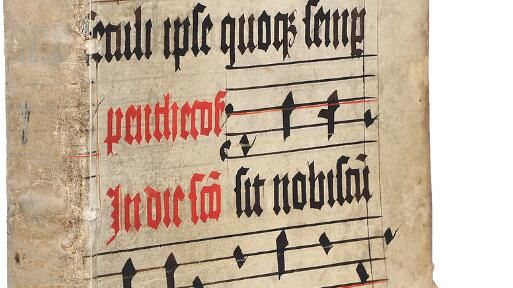 seculi ipse quoqȝ semp
penthecos
In die scō sit nobiscū